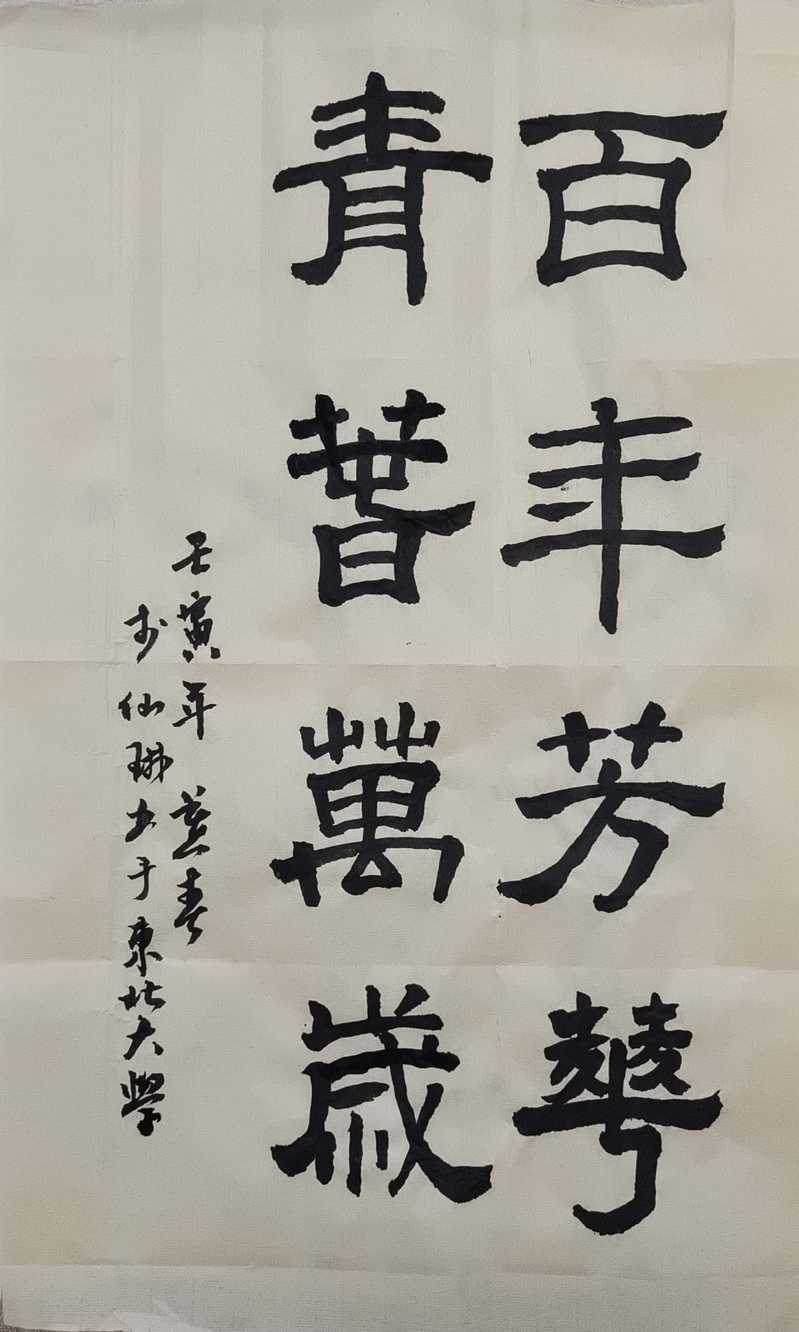 百年芳華
青春萬歲
壬寅年春
仙书于東北大學